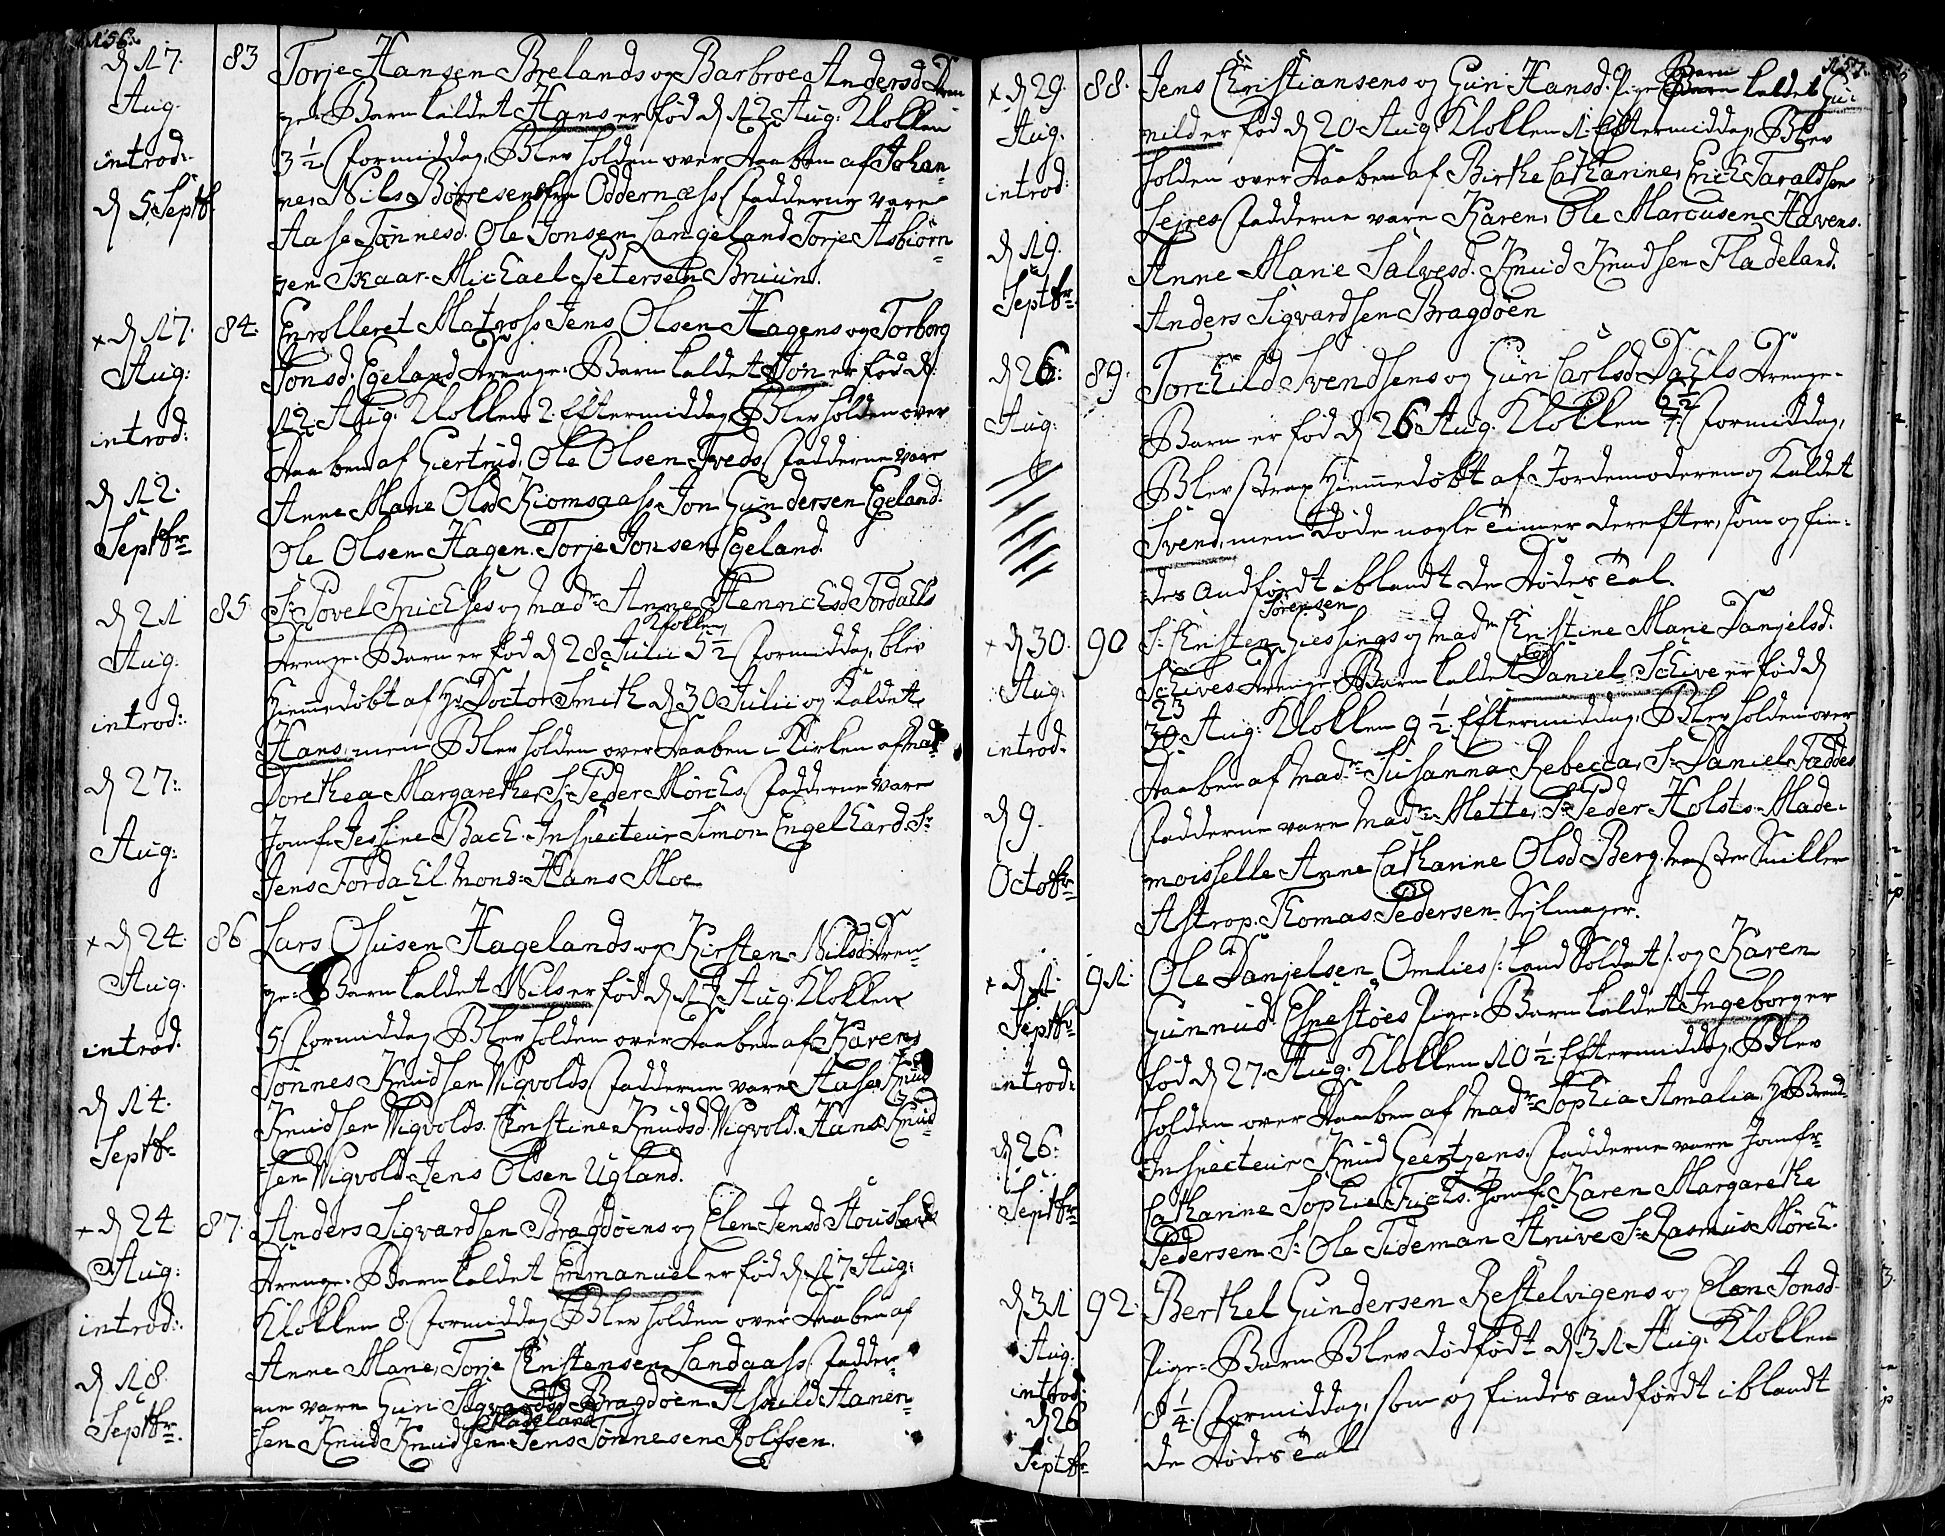 156.
d 17.
Aug.
introd:
d 5 Septbr
83
Torje Hansen Brelands og Barbroe Andersd Dren
ge-Barn kaldet Hans er fød d 12 Aug: Klokken
3½ Formiddag, Blev holden over Daaben af Johan-
ne, Nils Børresens fra Oddernæss, Fadderne vare
Aase Tønnesd. Ole Jonsen Langeland Torje Asbiørn
sen Skaar. Michael Petersen Bruun.
× d 17
Aug:
introd:
d 12.
Septbr
84.
Enrolleret Matross Jens Olsen Hagens og Torborg
Jonsd. Egeland Drenge-Barn kaldet Jon er fød d
12 Aug: Klokken 2. Eftermiddag, Blev holden over
Daaben af Giertrud, Ole Olsen Tveds, Fadderne vare
Anne Marie Olsd Kiomsaass Jon Gundersen Egeland.
Ole Olsen Hagen. Torje Jonsen Egeland.
d 21
Aug.
introd:
d 27:
Aug:
85
Sr Povel Friches og Madr Anne Henrichsd Fordahls
Klokken
Drenge-Barn er fød d 28 Julii 5½ Formiddag, blev
hiemmedøbt af Hr Doctor Smith d 30 Julii og kaldet
Hans, men Blev holden over Daaben i Kirken af Madr
Dorthea Margarethe, Sr Peder Mørchs. Fadderne vare
Jomfr Jessine Bach. Inspecteur Simon Engelhard. Sr
Jens Fordahl. Mons: Hans Moe
× d 24.
Aug.
introd.
d 14.
Septbr
86
Lars Osusen Hagelands og Kirsten Nilsd Dren-
ge-Barn kaldet Nils er fød d 17 Aug. Klokken
5 Formiddag Blev holden over Daaben af Karen,
Tønnes Knudsen Vigvolds, Fadderne vare Aase Knud
Knudsen Vigvolds. Christine Knudsd. Vigvold. Hans Knud-
sen Vigvold Jens Olsen Ugland.
× d 24
Aug:
introd:
d 18.
Septbr.
87.
Anders Sigvardsen Bragdøens og Elen Jensd
Drenge-Barn kaldet Emmanuel er fød d 17 Aug:
Klokken 8. Formiddag Blev holden over Daaben af
Anne Marie, Torje Christensen Landaass. Fadder-
ne vare Gun Sigvardsd Bragdøen Asuild Aanen-
Fladeland
sen Knud Knudsen. Jens Tønnesen Rolfsen.
157.
× d 29.
Aug.
introd:
d 19.
Septbr.
88.
Barn
Jens Christiansens og Guri Hansd. Pige-Barn kaldet Gu-
nild er fød d 20 Aug Klokken 1 Eftermiddag, Blev
holden over Daaben af Birthe Catharine, Erich Taraldsen
Lejres, Fadderne vare Karen, Ole Marcusen Havens.
Anne Marie Salvesd. Knud Knudsen Fladeland.
Anders Sigvardsen Bragdøen
d 26.
Aug:
89.
Torchild Svendsens og Gun Carlsd Dahls Drenge-
Barn er fød d 26 Aug. Klokken 6½ Formiddag,
Blev strax hiemmedøbt af Jordemoderen og kaldet
Svend, men døde nogle Timer derefter, som og fin-
des andført iblandt de Dødes Tal.
× d 30.
Aug.
introd.
d 9.
Octobr
90
Sørensen
Sr Christen Giessings og Madr Christine Marie Danjelsd.
Schives Drenge-Barn kaldet Daniel Schive er fød d
23
30 Aug: Klokken 9½ Eftermiddag, Blev holden over
Daaben af Madr Susanna Rebecca, Sr Daniel Fæddes
Fadderne vare Madr Mette, Sr Peder Holsts. Made-
moisselle Anne Catharine Olsd Berg.
Astrop. Thomas Pedersen Sejlmager.
× d 1
Septbr
introd:
d 26.
Septbr
91.
Ole Danjelsen Omlies /: Land Soldat /: og Karen
Gunnud Pige-Barn kaldet Ingeborg er
fød d 27. Aug: Klokken 10½ Eftermiddag, Blev
holden over Daaben af Madr Sophia Amalia, Hr
Inspecteur Knud Geertzens. Fadderne vare Jomfr
Catharine Sophie Frichs. Jomfr Karen Margarethe
Pedersen. Sr Ole Tideman Strive Sr Rasmus Mørch.
d 31
Aug.
introd:
d 26
Septbr
92.
Berthel Gundersen Restelvigens og Elen Jonsd
Pige-Barn Blev dødfødt d 31 Aug. Klokken
8¼ Formiddag, som og findes andført iblandt
de Dødes Tal